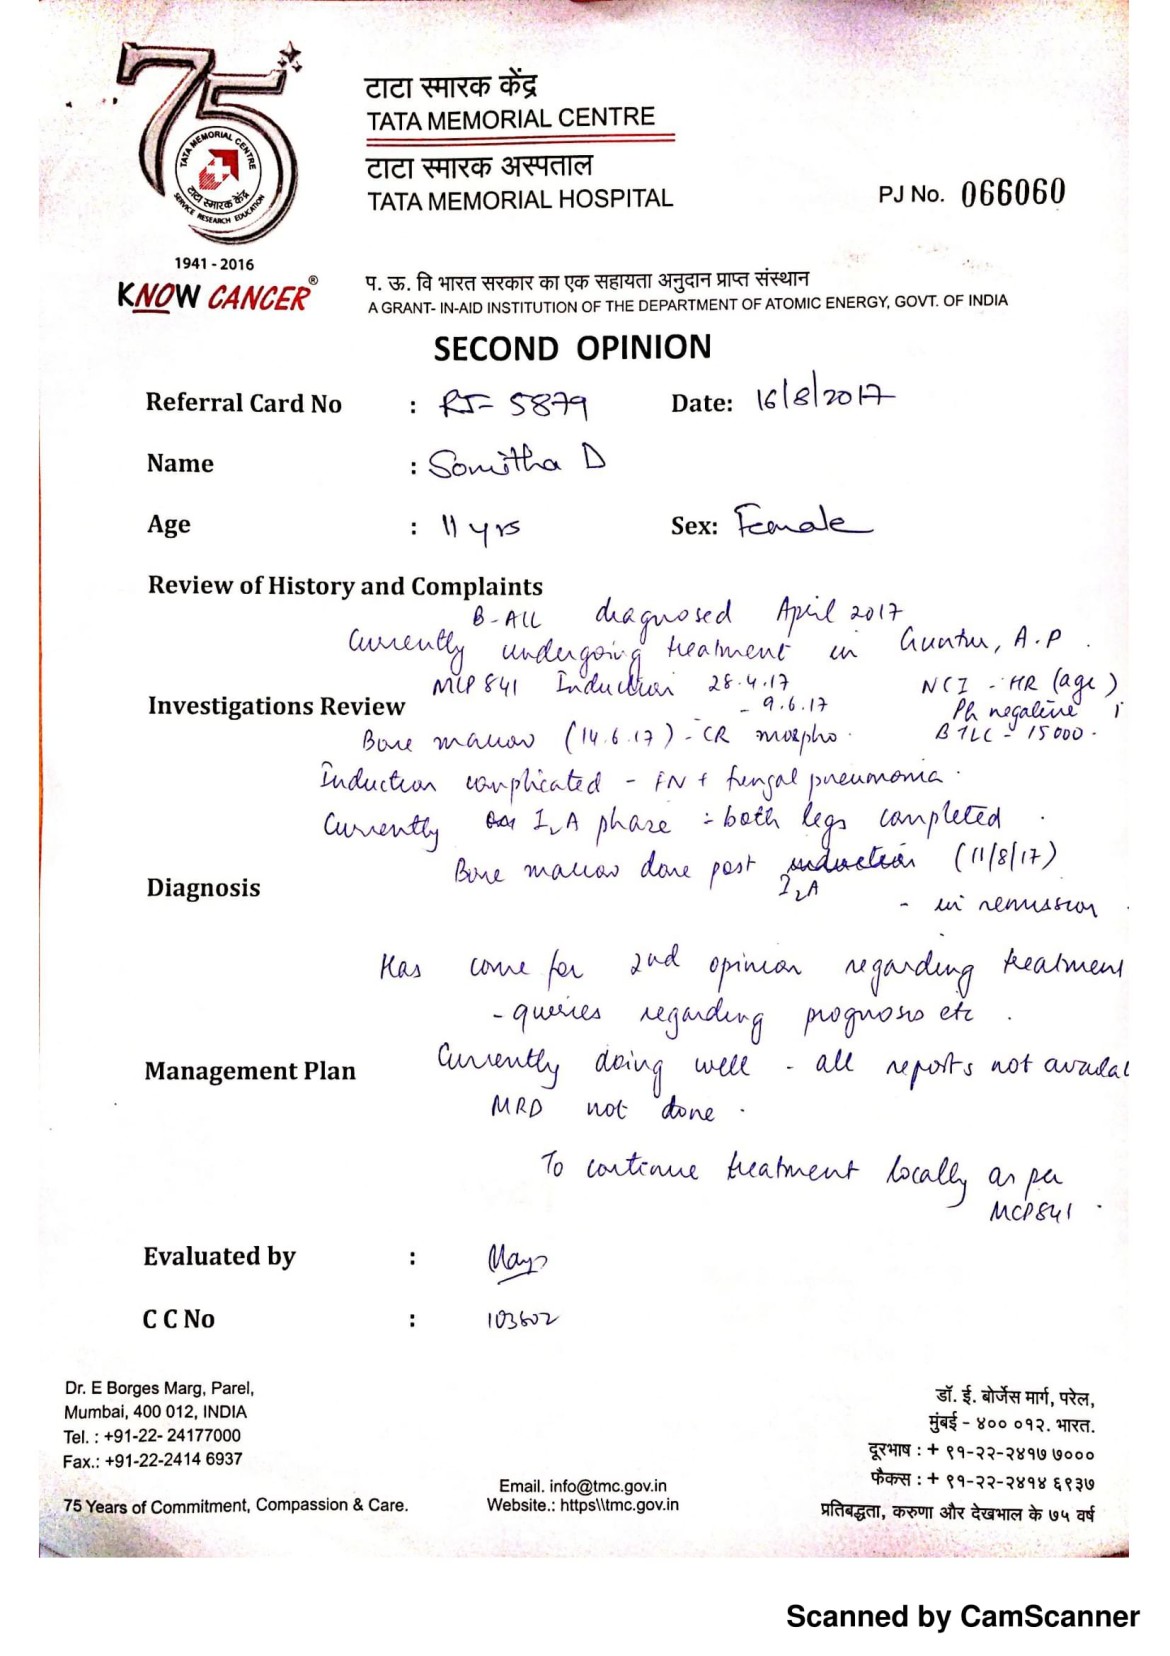 75
TATA MEMORIAL CENTRE
टाटा स्मारक केंद्र
SERVICE RESEARCH EDUCATION
1941 - 2016
KNOW CANCER®
टाटा स्मारक केंद्र
TATA MEMORIAL CENTRE
टाटा स्मारक अस्पताल
TATA MEMORIAL HOSPITAL
PJ No. 066060
प. ऊ. वि भारत सरकार का एक सहायता अनुदान प्राप्त संस्थान
A GRANT- IN-AID INSTITUTION OF THE DEPARTMENT OF ATOMIC ENERGY, GOVT. OF INDIA
SECOND OPINION
Referral Card No : RJ- 5879 Date: 16/8/2017
Name : Somitha D
Age : 11 yrs Sex: Female
Review of History and Complaints
B-ALL diagnosed April 2017
Currently undergoing treatment in Guntur, A.P.
MCP 841 Induction 28.4.17 NCI - HR (age)
Investigations Review - 9.6.17 Ph negative
Bone marrow (14.6.17) - CR morpho. BTLC - 15000.
Induction complicated - FN + fungal pneumonia.
Currently I2A phase - both legs completed.
Bone marrow done post induction (11/8/17)
Diagnosis I2A
- in remission
Has come for 2nd opinion regarding treatment
- queries regarding prognosis etc.
Management Plan Currently doing well - all reports not availa
MRD not done.
To continue treatment locally as per
MCP841.
Evaluated by :
C C No : 103602
Dr. E Borges Marg, Parel,
Mumbai, 400 012, INDIA
Tel. : +91-22- 24177000
Fax.: +91-22-2414 6937
75 Years of Commitment, Compassion & Care.
Email. info@tmc.gov.in
Website.: https\\tmc.gov.in
डॉ. ई. बोर्जेस मार्ग, परेल,
मुंबई - ४०० ०१२. भारत.
दूरभाष : + ९१-२२-२४१७ ७०००
फैक्स : + ९१-२२-२४१४ ६९३७
प्रतिबद्धता, करुणा और देखभाल के ७५ वर्ष
Scanned by CamScanner